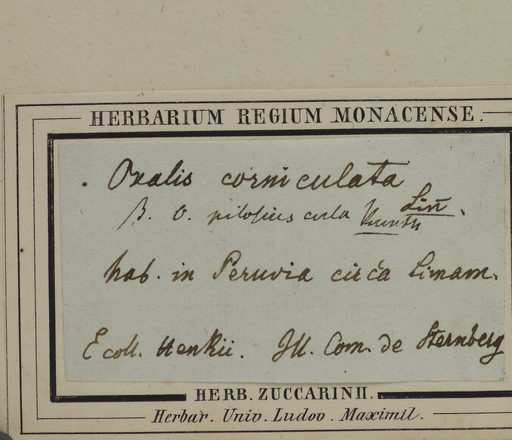 HERBARIUM REGIUM MONACENSE.
. Oxalis corniculata
Lin̄.
β. O. pilosiuscula Kunth
hab. in Peruvia circa Limam.
E coll. Henkii. Ill. Com. de Sternberg
HERB. ZUCCARINII.
Herbar. Univ. Ludov. Maximil.